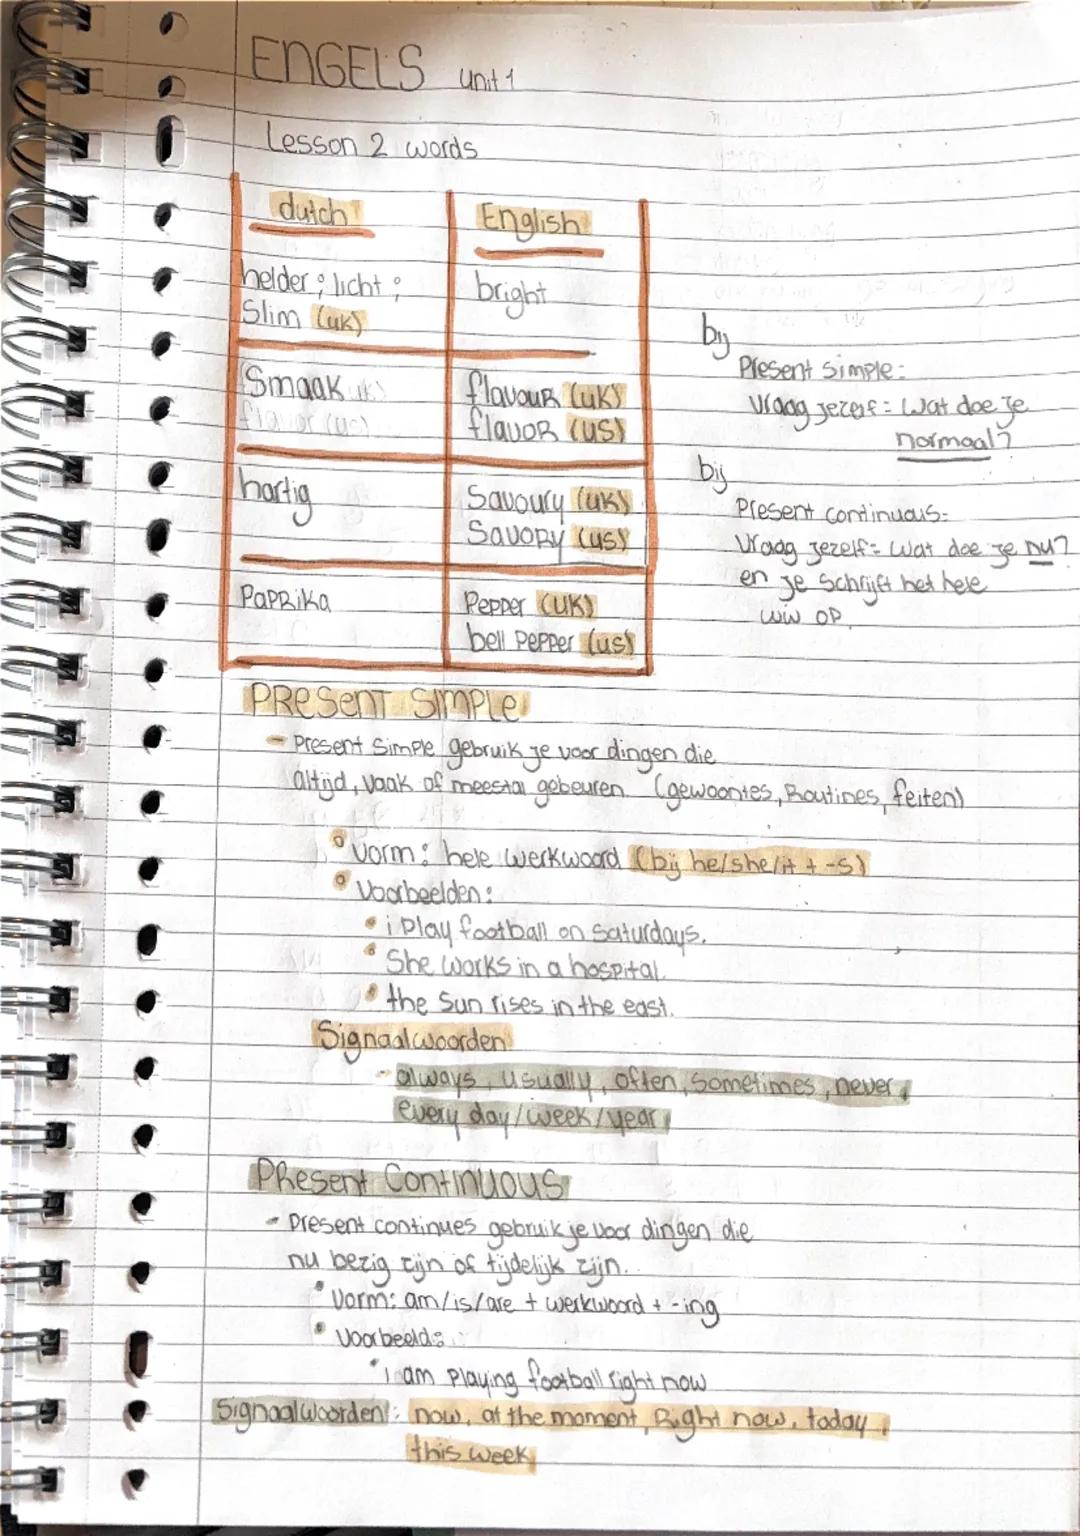 ENGELS unit 1
Lesson 2 words
dutch English
helder ; licht ; bright
Slim (uk)
Smaak (uk) flavour (uk)
flavor (us) flavor (us)
hartig Savoury (uk)
Savory (us)
Paprika Pepper (uk)
bell Pepper (us)
bij
Present simple:
Vraag jezelf = Wat doe je
normaal?
bij
Present continuous:
Vraag jezelf = Wat doe je nu?
en je Schrijft het hele
ww op.
PRESENT SIMPLE
- Present Simple gebruik je voor dingen die
altijd, vaak of meestal gebeuren (gewoontes, Routines, feiten)
Vorm: hele werkwoord (bij he/she/it + -s)
Voorbeelden:
i Play football on Saturdays.
She works in a hospital.
the Sun rises in the east.
Signaalwoorden
- always, usually, often, Sometimes, never,
every day/week/year
Present Continuous
- Present continues gebruik je voor dingen die
nu bezig zijn of tijdelijk zijn.
Vorm: am/is/are + werkwoord + -ing
Voorbeeld:
i am Playing football right now
Signaalwoorden: now, at the moment, Right now, today,
this week